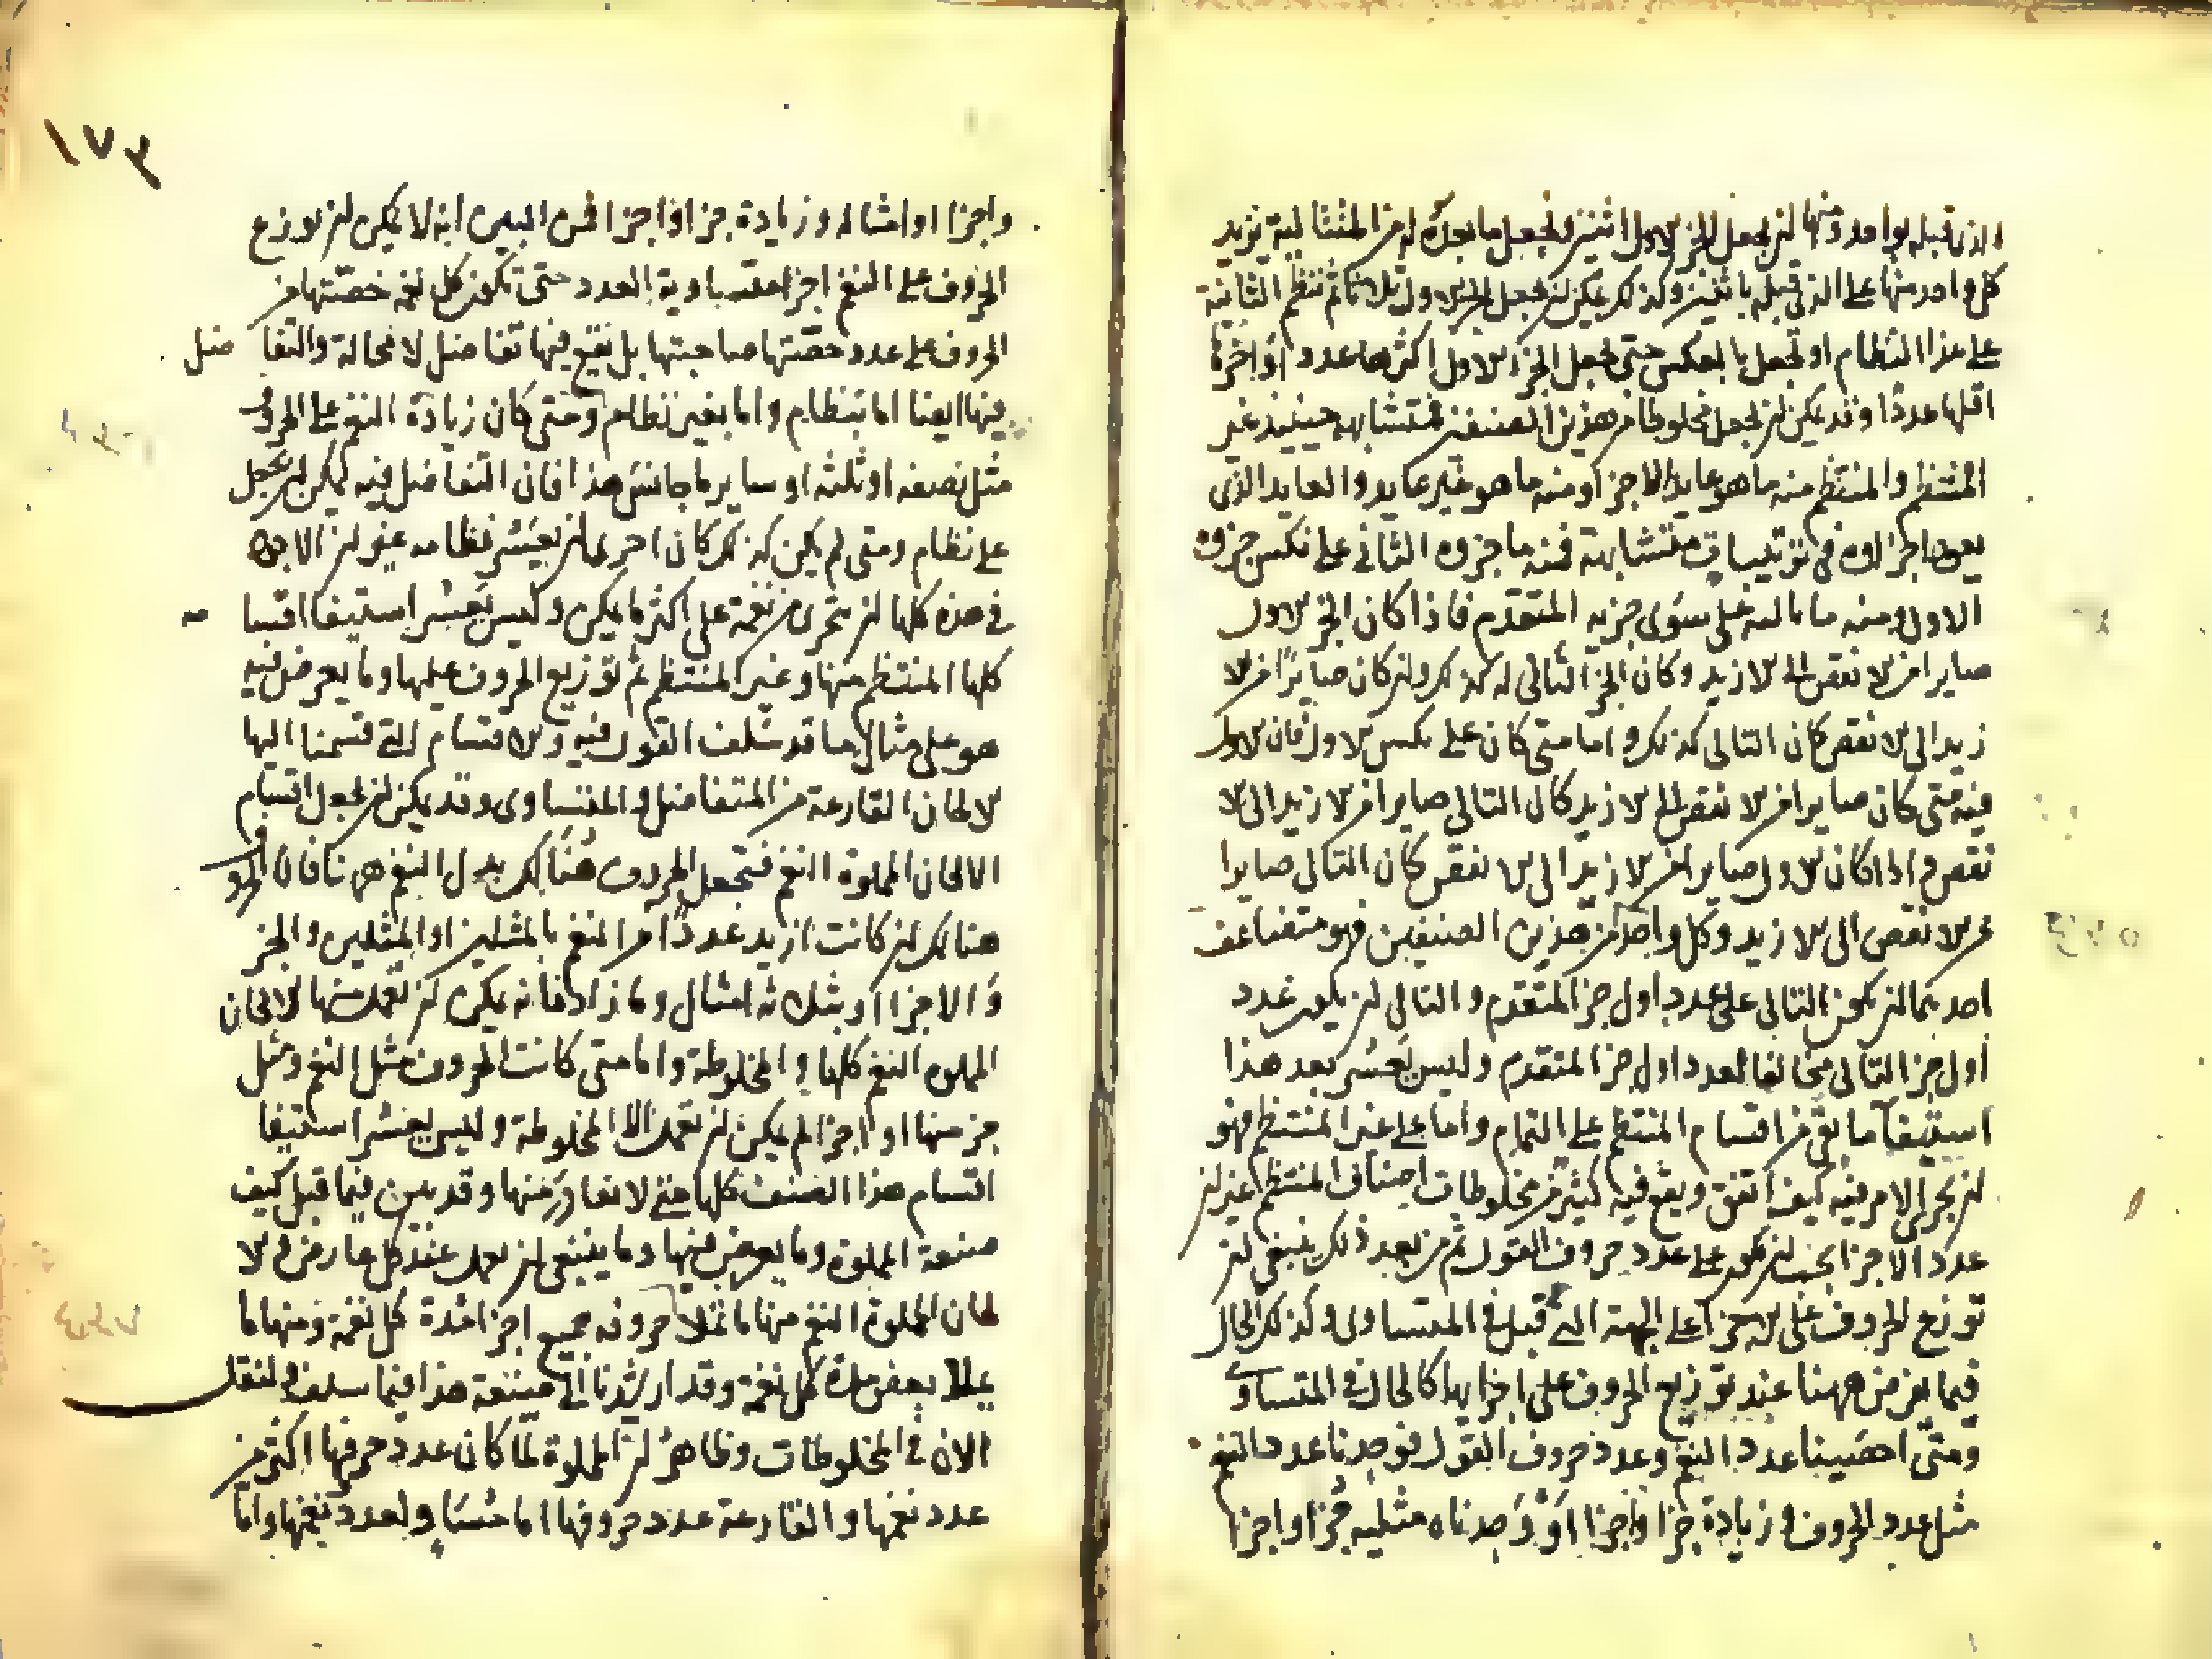 الذى قبله بواحد ومنها ان يجعل الجز الاول اثنين ويجعل ما بعده له من المتتالية تزيد
كل واحد منها على الذى قبله باثنين وكذلك يمكن ان يجعل الجز الاول ثلاثا ثم تنتظم الثانية
على هذا النظام او تجعل بالعكس حتى يجعل الجز الاول اكثرها عددا واخرها
اقلها عددا وقد يمكن ان يجعل مخلوطا من هذين الصنفين فتشابه حينيذ غير
المنتظم والمنتظم منه ما هو عايد الاجزا ومنه ما هو غير عايد والعايد الذى
يعود اجزاوه فى ترتيبات متشابهة فمنه ما جزوه الثانى على نكس جزوه
الاول ومنه ما تاليه على سوى جزيه المتقدم فاذا كان الجز الاول
صايرا من الانقص الى الازيد وكان الجز التالى له كذلك وان كان صايرا من الا
زيد الى الانقص كان التالى كذلك واما متى كان على نكس الاول فان الاول
فيه متى كان صايرا من الانقص الى الازيد كان التالى صايرا من الازيد الى الا
نقص واذا كان الاول صايرا من الازيد الى الانقص كان التالى صايرا
من الانقص الى الازيد وكل واحد من هذين الصنفين فهو متضاعف
احدهما ان يكون التالى على عدد اول جز المتقدم والتالى ان يكون عدد
اول جز التالى مخالفا لعدد اول جز المتقدم وليس يعسر بعد هذا
استيفا ما بقى من اقسام المنتظم على التمام واما على غير المنتظم فهو
ان يجرى الامر فيه كيف اتفق ويقع فيه كثير من مخلوطات اصناف المنتظم غير ان
عدد الاجزا يجب ان يكون على عدد حروف القول ثم من بعد ذلك ينبغى ان
توزع الحروف على الاجزا على الجهة التى قيل فى المتساوى وكذلك الحال
فيما يعرض ههنا عند توزيع الحروف على اجزايها كالحال فى المتساوى
ومتى احصينا عدد النغم وعدد حروف القول فوجدنا عدد النغم
مثل عدد الحروف وزيادة جزا واجزا او وجدناه مثليه وجزا واجزا
١٧٣
واجزا او امثاله وزيادة جزا او اجزا فمن البين انه لا يمكن ان توزع
الحروف على النغم اجزا متساوية العدد حتى تكون كل نغمة حصتها من
الحروف على عدد حصتها صاحبتها بل يقع فيها تفاضل لا محالة والتفاضل
فيها ايضا اما بنظام واما بغير نظام ومتى كان زيادة النغم على الحروف
مثل نصفه او ثلثه او ساير ما جانس هذا فان التفاضل فيه يمكن ان يجعل
على نظام ومتى لم يكن كذلك كان احرى ان يعسر نظامه غير ان الاجود
فى هذه كلها ان يتحرى من نغمه على اكثر ما يمكن وليس يعسر استيفا اقسامه
كلها المنتظم منها وغير المنتظم ثم توزيع الحروف عليها وما يعرض فيه
هو على مثال ما قد سلف القول فيه والاقسام التى قسمنا اليها
الالحان القارعة من المتفاضل والمتساوى وقد يمكن ان يجعل اقسام
الالحان المملوة النغم فتجعل الحروف هنالك بدل النغم ههنا فان الحروف
هنالك ان كانت ازيد عددا من النغم بالمثلين او المثلين والجز
والاجزا او بثلاثة امثال وما زاد فانه يمكن ان تعمل منها الالحان
المملوه النغم كلها والمخلوطة واما متى كانت الحروف مثل النغم ومثل
جز منها او اجزا لم يمكن ان تعمل الا المخلوطة وليس يعسر استيفا
اقسام هذا الصنف كلها حتى لا نغادر منها وقد بين فيما قبل كيف
صنعة المملوة وما يعرض فيها وما ينبغى ان يعمل عند كل عارض والا
لحان المملوة النغم منها ما تملا حروفه جميع اجزا مدة كل نغمة ومنها ما
يملا بعض مدة كل نغمة وقد ارشدنا الى صنعة هذا فيما سلف ولنقل
الان فى المخلوطات وظاهر ان المملوة لما كان عدد حرفها اكثر من
عدد نغمها والقارعة عدد حروفها اما مساو لعدد نغمها واما